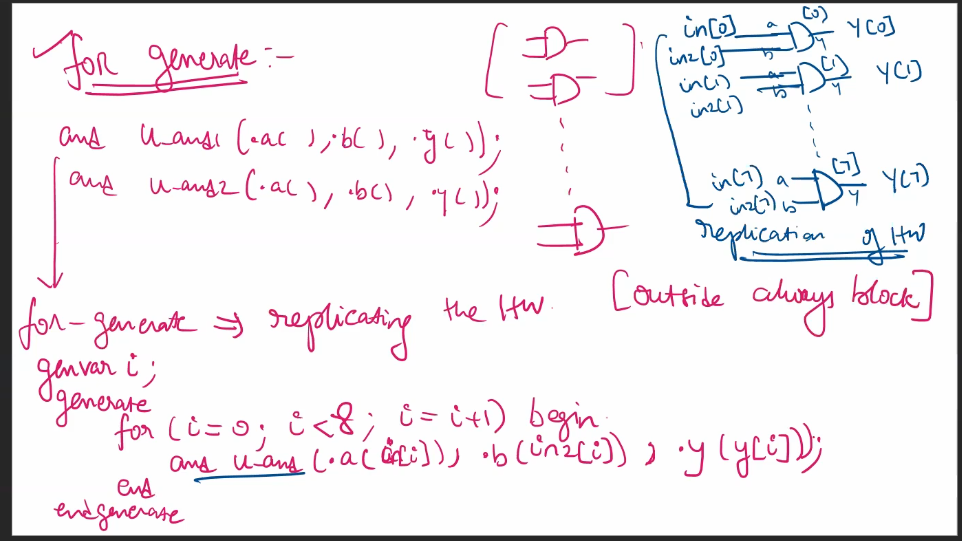 for generate :-
and u_and1 (.a( ), .b( ), .y( ));
and u_and2 (.a( ), .b( ), .y( ));
in[0] a [0] y[0]
in2[0] b y
in[1] a [1] y[1]
in2[1] b y
in[7] a [7] y[7]
in2[7] b y
replication of HW
for-generate ⇒ replicating the HW. [outside always block]
genvar i;
generate
for (i=0; i<8; i=i+1) begin
and u_and (.a(in[i]), .b(in2[i]), .y(y[i]));
end
endgenerate